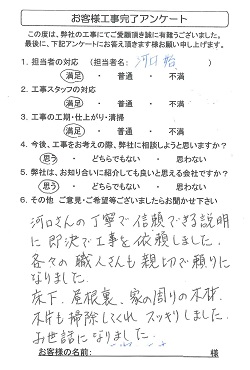 お客様工事完了アンケート
この度は、弊社の工事にてご愛顧頂き誠に有難うございました。
最後に、下記アンケートにお答え頂きます様お願い申し上げます。
1. 担当者の対応 (担当者名: 河口 )
満足 ・ 普通 ・ 不満
2. 工事スタッフの対応
満足 ・ 普通 ・ 不満
3. 工事の工期・仕上がり・清掃
満足 ・ 普通 ・ 不満
4. 今後、工事をお考えの際、弊社に相談しようと思いますか?
思う ・ どちらでもない ・ 思わない
5. 弊社は、お知り合いに紹介しても良いと思える会社ですか?
思う ・ どちらでもない ・ 思わない
6. その他 ご意見・ご希望等ございましたらお聞かせ下さい
河口さんの丁寧で信頼できる説明
に即決で工事を依頼しました。
各々の職人さんも親切で頼りに
なりました。
床下、屋根裏、家の周りの木材、
木片も掃除してくれスッキリしました。
お世話になりました。
お客様の名前: 様